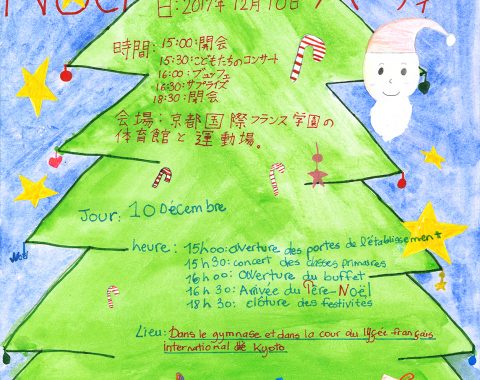 Noël 日: 2017年 12月 10日 パーティ
時間: 15:00: 開会
15:30: こどもたちのコンサート
16:00: ブュッフェ
16:30: サプライズ
18:30: 閉会
会場: 京都国際フランス学園の
体育館と運動場。
Jour: 10 Décembre
heure: 15h00: Overture des portes de l'établissement
15h30: concert des classes primaires
16h00: Overture du buffet
16h30: Arrivée du Père-Noël
18h30: clôture des festivités
Lieu: Dans le gymnase et dans la cour du lycée français
international de Kyoto